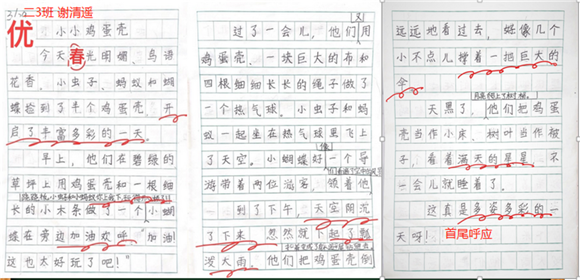 二3班 谢清遥
优
小小鸡蛋壳
今天春光明媚、鸟语
花香，小虫子、蚂蚁和蝴
蝶捡到了半个鸡蛋壳，开
启了丰富多彩的一天。
早上，他们在碧绿的
草坪上用鸡蛋壳和一根细
长的小木条做了一个小
蝶在旁边加油欢呼"加油！
这也太好玩了吧！"
过了一会儿，他们又用
鸡蛋壳、一块巨大的布和
四根细细长长的绳子做了
一个热气球。小虫子和蚂
蚁一起坐在热气球里飞上
了天空。小蝴蝶好像一个导
游带着两位游客，领着他
到了下午，天空阴沉
了下来，忽然就下起了瓢
泼大雨，他们把鸡蛋壳倒
远远地看过去，好像几个
小不点儿撑着一把巨大的
伞。
天黑了，他们把鸡蛋
壳当作小床，树叶当作被
子，看着满天的星星，不
一会儿就睡着了。
这真是多姿多彩的一
天呀！
首尾呼应